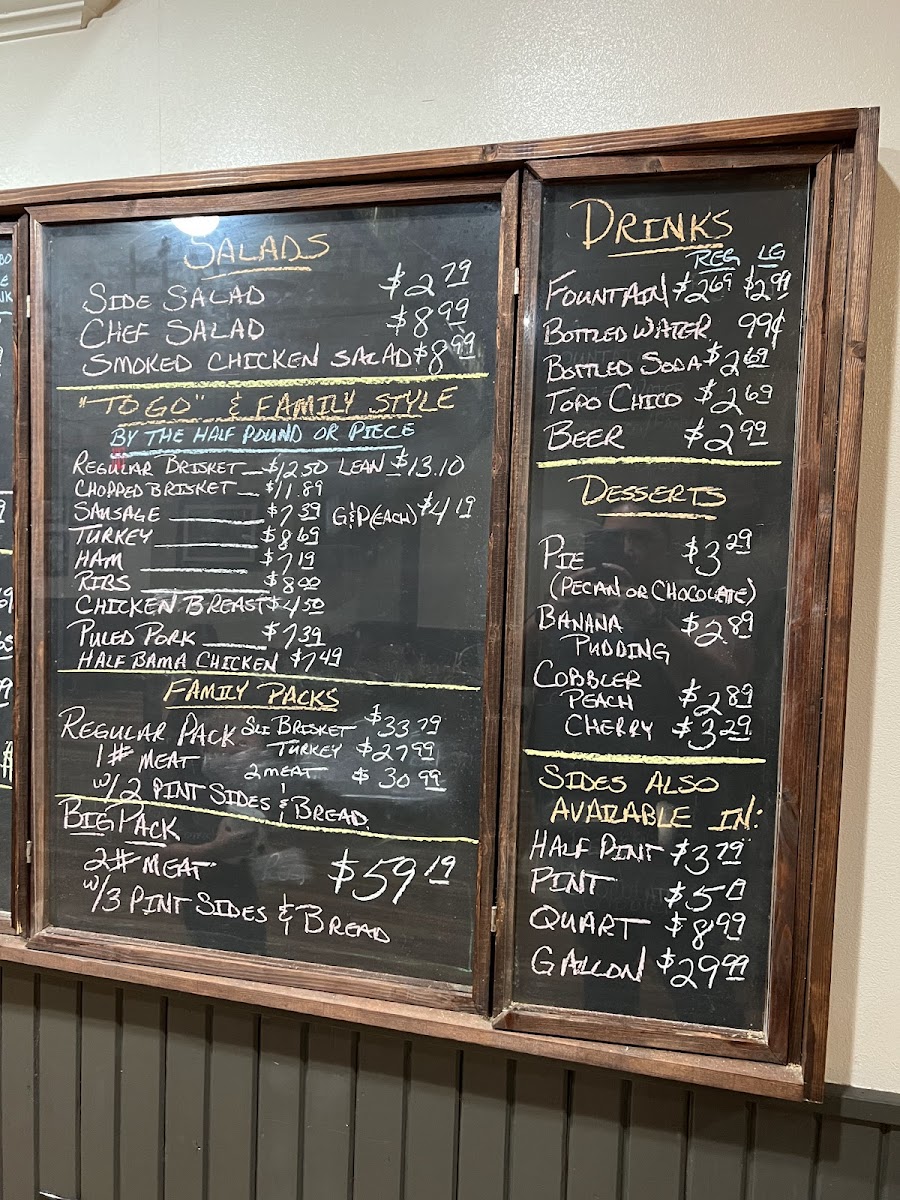 SALADS
SIDE SALAD $2.79
CHEF SALAD $8.99
SMOKED CHICKEN SALAD $8.99
"TO GO" & FAMILY STYLE
BY THE HALF POUND OR PIECE
REGULAR BRISKET $12.50 LEAN $13.10
CHOPPED BRISKET $11.89
SAUSAGE $7.39 G&P(EACH) $4.19
TURKEY $8.69
HAM $7.19
RIBS $8.00
CHICKEN BREAST $4.50
PULED PORK $7.39
HALF BAMA CHICKEN $7.49
FAMILY PACKS
REGULAR PACK SLI BRISKET $33.79
TURKEY $27.99
1# MEAT 2 MEAT $30.99
W/2 PINT SIDES & BREAD
BIG PACK
2# MEAT $59.19
W/3 PINT SIDES & BREAD
DRINKS
REG LG
FOUNTAIN $2.69 $2.99
BOTTLED WATER 99¢
BOTTLED SODA $2.69
TOPO CHICO $2.69
BEER $2.99
DESSERTS
PIE $3.29
(PECAN OR CHOCOLATE)
BANANA $2.89
PUDDING
COBBLER
PEACH $2.89
CHERRY $3.29
SIDES ALSO
AVAILABLE IN:
HALF PINT $3.79
PINT
QUART $8.99
GALLON $29.99